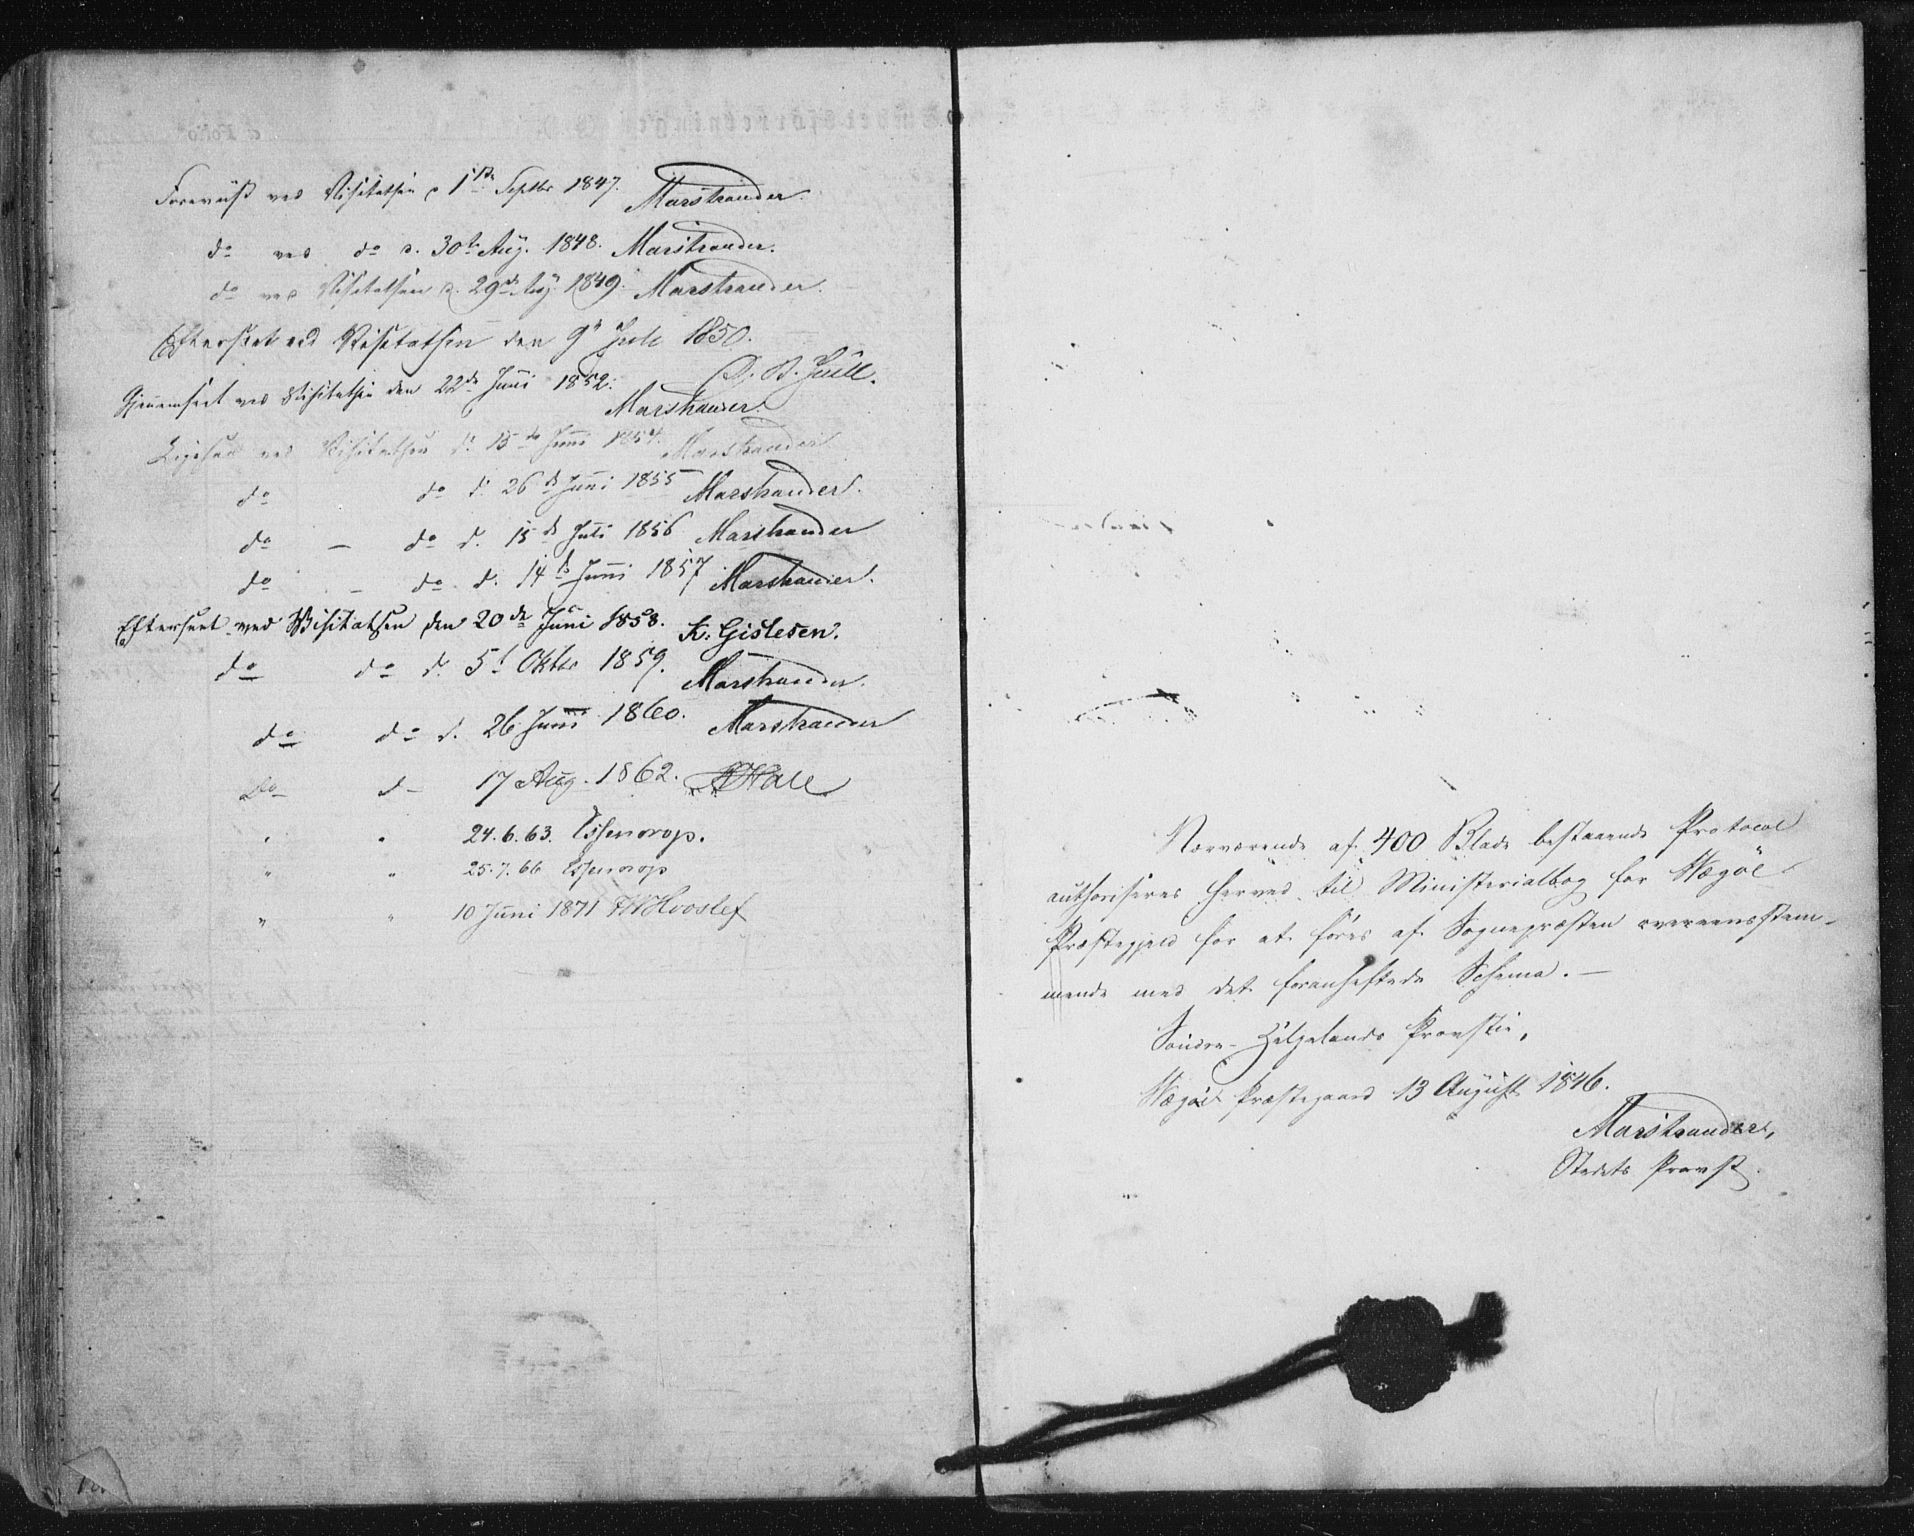 Foreviist ved Visitatsen d. 1ste Septbr 1847. Marstrander.
do ved do d. 30te Aug. 1848. Marstrander.
do ved Visitatsen d. 29de Aug 1849. Marstrander.
Efterseet ved Visitatsen den 9de Juli 1850.
D. B. Juell.
Gjennemseet ved Visitatsen den 22de Juni 1852.
Marstrander.
Ligesaa ved Visitatsen d. 15de Juni 1854. Marstrander
do do d. 26de Juni 1855 Marstrander.
do – do d. 15de Juli 1856 Marstrander
do – do d. 14de Juni 1857 Marstrander.
Efterseet ved Visitatsen den 20de Juni 1858. K. Gislesen.
do do d. 5te Oktbr 1859. Marstrander.
do do d. 26 Juni 1860. Marstrander
Do d– 17 Aug. 1862.
" " 24.6.63. Essendrop.
" " 25.7.66 Essendrop
" " 10 Juni 1871 FWHvoslef
Nærværende af 400 Blade bestaaende Protocol
authoriseres herved til Ministerialbog for Vægøe
Præstegjeld for at føres af Sognepræsten overeensstem-
mende med det foranheftede Schema. –
Søndre-Helgelands Provstie,
Vægøe Præstegaard 13 August 1846.
Marstrander,
Stedets Provst.